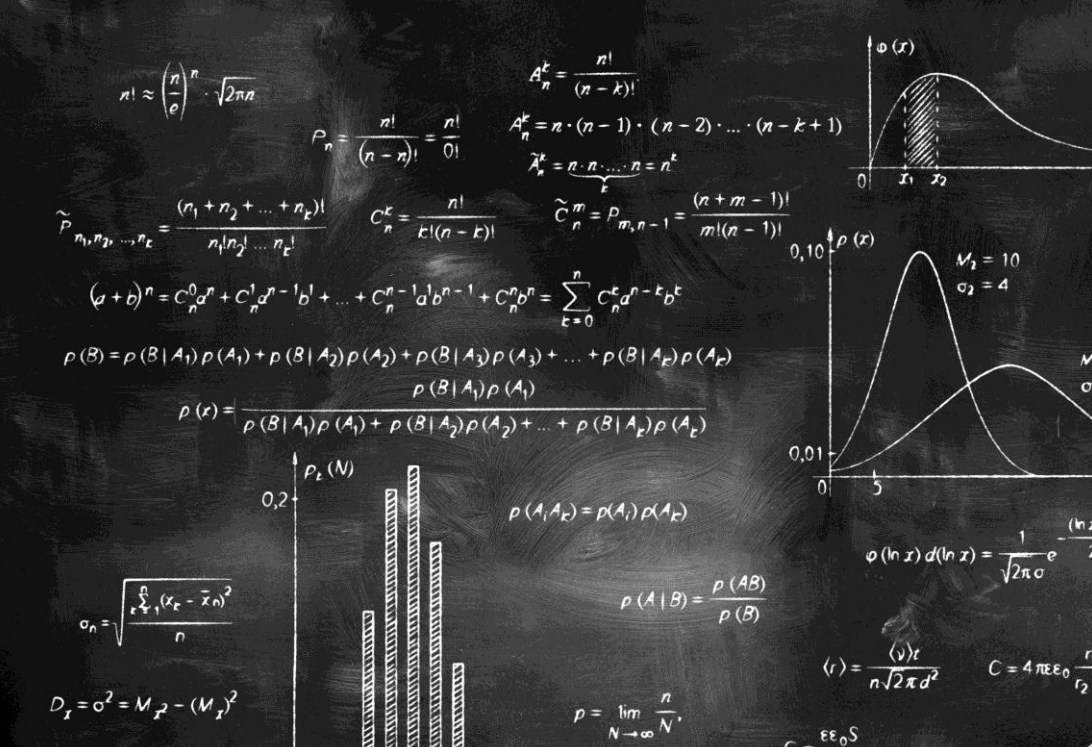 n! ≈ (n/e)ⁿ · √2πn
Pₙ = n!/(n − n)! = n!/0!
Aₙᵏ = n!/(n − k)!
Aₙᵏ = n · (n − 1) · (n − 2) · ... · (n − k + 1)
Ãₙᵏ = n · n · ... · n = nᵏ
k
P̃ n₁, n₂, ..., nₖ = (n₁ + n₂ + ... + nₖ)!/n₁!n₂! ... nₖ!
Cₙᵏ = n!/k!(n − k)!
C̃ₙᵐ = P m, n − 1 = (n + m − 1)!/m!(n − 1)!
(a + b)ⁿ = Cₙ⁰aⁿ + Cₙ¹aⁿ⁻¹b¹ + ... + Cₙⁿ⁻¹a¹bⁿ⁻¹ + Cₙⁿbⁿ = ∑ₖ₌₀ⁿ Cₙᵏaⁿ⁻ᵏbᵏ
p (B) = p (B | A₁) p (A₁) + p (B | A₂) p (A₂) + p (B | A₃) p (A₃) + ... + p (B | Aₖ) p (Aₖ)
p (x) = p (B | A₁) p (A₁)/p (B | A₁) p (A₁) + p (B | A₂) p (A₂) + ... + p (B | Aₖ) p (Aₖ)
pₖ (N)
0,2
p (AᵢAₖ) = p(Aᵢ) p(Aₖ)
p (A | B) = p (AB)/p (B)
σₙ = √(∑ₖ₌₁ⁿ (xₖ − x̄ₙ)²/n)
Dₓ = σ² = Mₓ² − (Mₓ)²
p = lim N→∞ n/N,
φ (x)
0 x₁ x₂
p (x)
0,10
M₂ = 10
σ₂ = 4
0,01
0 5
φ (ln x) d(ln x) = 1/√2π σ e
⟨r⟩ = ⟨v⟩t/n√2 π d²
C = 4 πεε₀
εε₀S